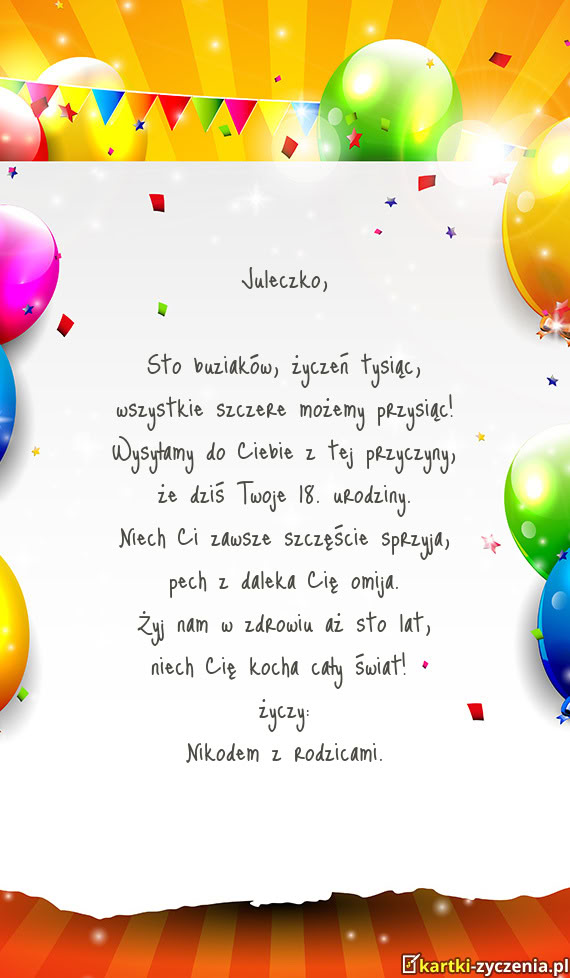 Juleczko,
Sto buziaków, życzeń tysiąc,
wszystkie szczere możemy przysiąc!
Wysyłamy do Ciebie z tej przyczyny,
że dziś Twoje 18. urodziny.
Niech Ci zawsze szczęście sprzyja,
pech z daleka Cię omija.
Żyj nam w zdrowiu aż sto lat,
niech Cię kocha cały świat!
życzy:
Nikodem z rodzicami.
kartki-zyczenia.pl